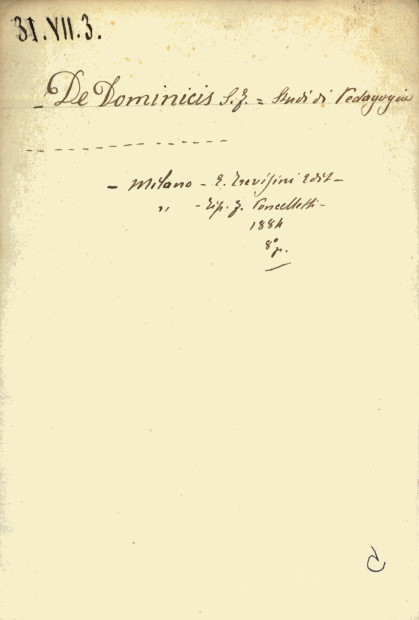 31.VII.3.
– De Dominicis S. F. = Studi di Pedagogia
– Milano – E. Trevisini Edit –
" – Tip. F. Poncelletti –
1884
8° p.
C